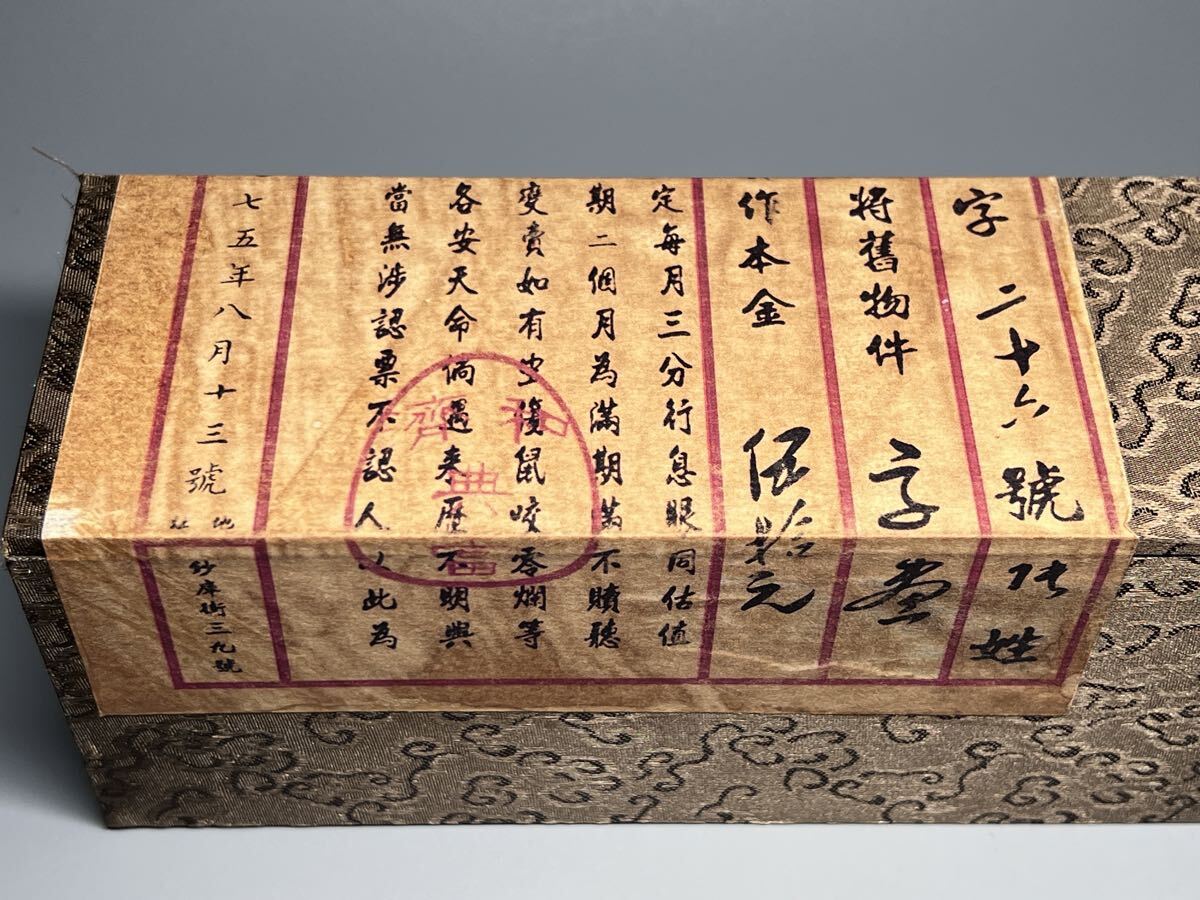 字 二十六號 張姓
將舊物件 字畫
作本金 伍拾元
定每月三分行息眼同估值
期二個月為滿期萬不贖聽
變賣如有虫傷鼠咬零爛等
各安天命倘遇來歷不明與
當無涉認票不認人以此為
七五年八月十三號
地址
鈔庫街三九號
和
齊
典
當